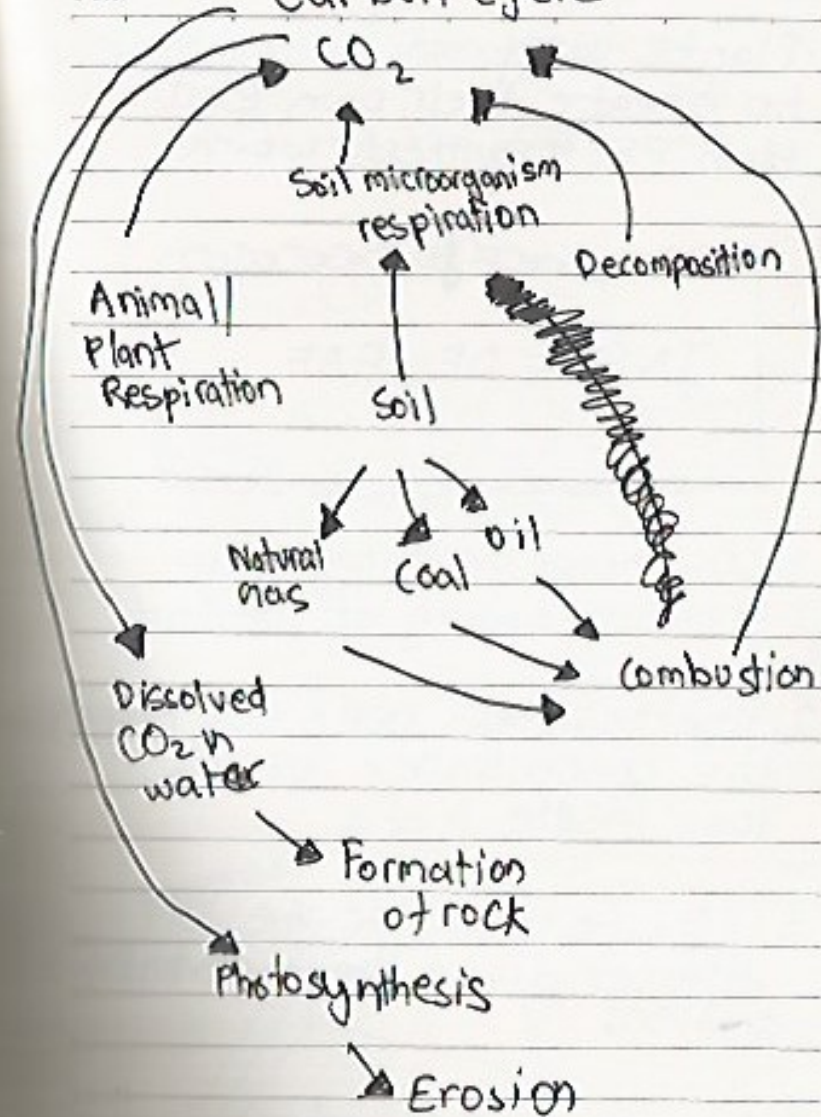 Carbon Cycle
CO₂
Soil microorganism
respiration
Decomposition
Animal/
Plant
Respiration
Soil
Natural
gas
Coal
Oil
Combustion
Dissolved
CO₂ n
water
Formation
of rock
Photosynthesis
Erosion